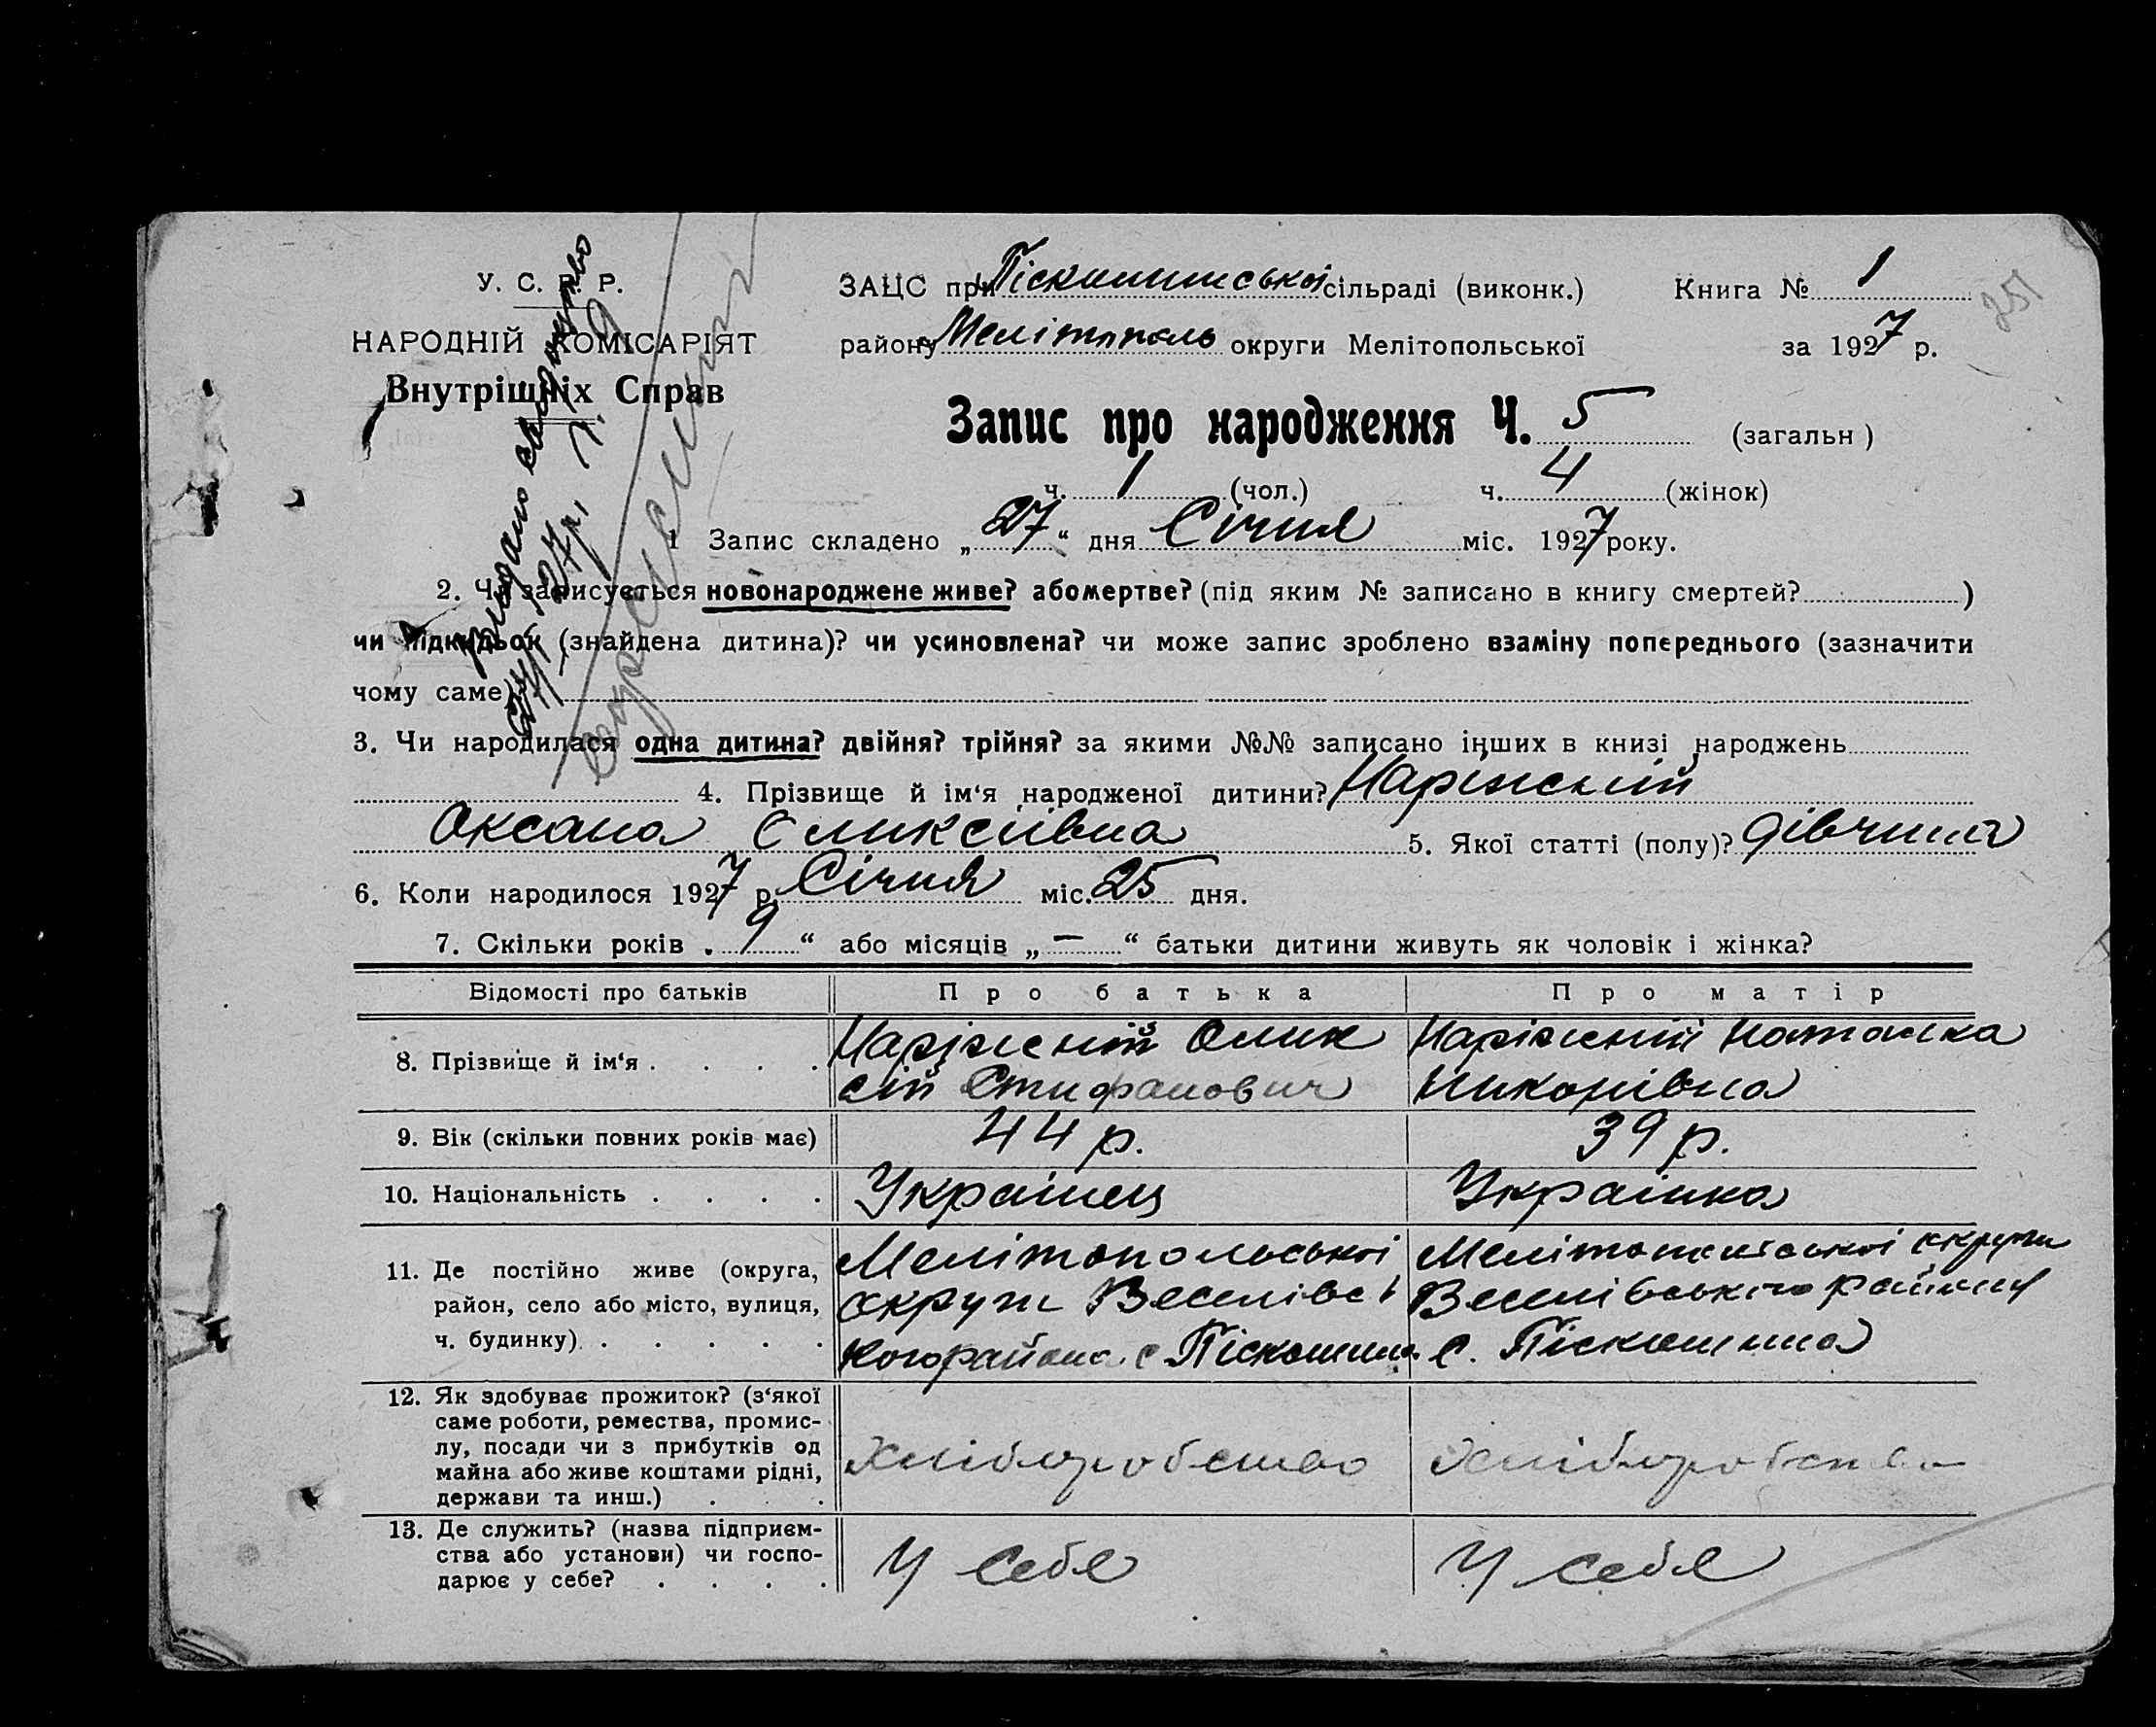 У. С. Р. Р.
НАРОДНІЙ КОМІСАРІЯТ
Внутрішніх Справ
ЗАЦС при Піскошинської сільраді (виконк.) Книга № 1
251
району Мелітополь округи Мелітопольської за 1927 р.
Запис про народження Ч. 5 (загальн)
ч. 1 (чол.) ч. 4 (жінок)
1 Запис складено „27“ дня Січня міс. 1927 року.
2. Чи записується новонароджене живе? або мертве? (під яким № записано в книгу смертей? )
чи підкидьок (знайдена дитина)? чи усиновлена? чи може запис зроблено взаміну попереднього (зазначити
чому саме)
3. Чи народилася одна дитина? двійня? трійня? за якими №№ записано інших в книзі народжень
4. Прізвище й ім‘я народженої дитини? Наріжений
Оксана Оликсіївна 5. Якої статті (полу)? дівчина
6. Коли народилося 1927 р. Січня міс. 25 дня.
7. Скільки років „9“ або місяців „—“ батьки дитини живуть як чоловік і жінка?
Відомості про батьків Про батька Про матір
8. Прізвище й ім‘я . . . . Наріжений Олик Наріжений Наталка
сій Стифанович Никонівна
9. Вік (скільки повних років має) 44 р. 39 р.
10. Національність . . . . Українец Українка
11. Де постійно живе (округа, Мелітопольської Мелітопольської округи
район, село або місто, вулиця, округи Веселівсь Веселівського району
ч. будинку) . . . . . кого району с Піскошино с. Піскошино
12. Як здобуває прожиток? (з‘якої
саме роботи, ремества, промис-
лу, посади чи з прибутків од Хліборобство Хліборобство
майна або живе коштами рідні,
держави та инш.) . . .
13. Де служить? (назва підприєм-
ства або установи) чи госпо- У себе У себе
дарює у себе? . . . .
Видано свідоцтво